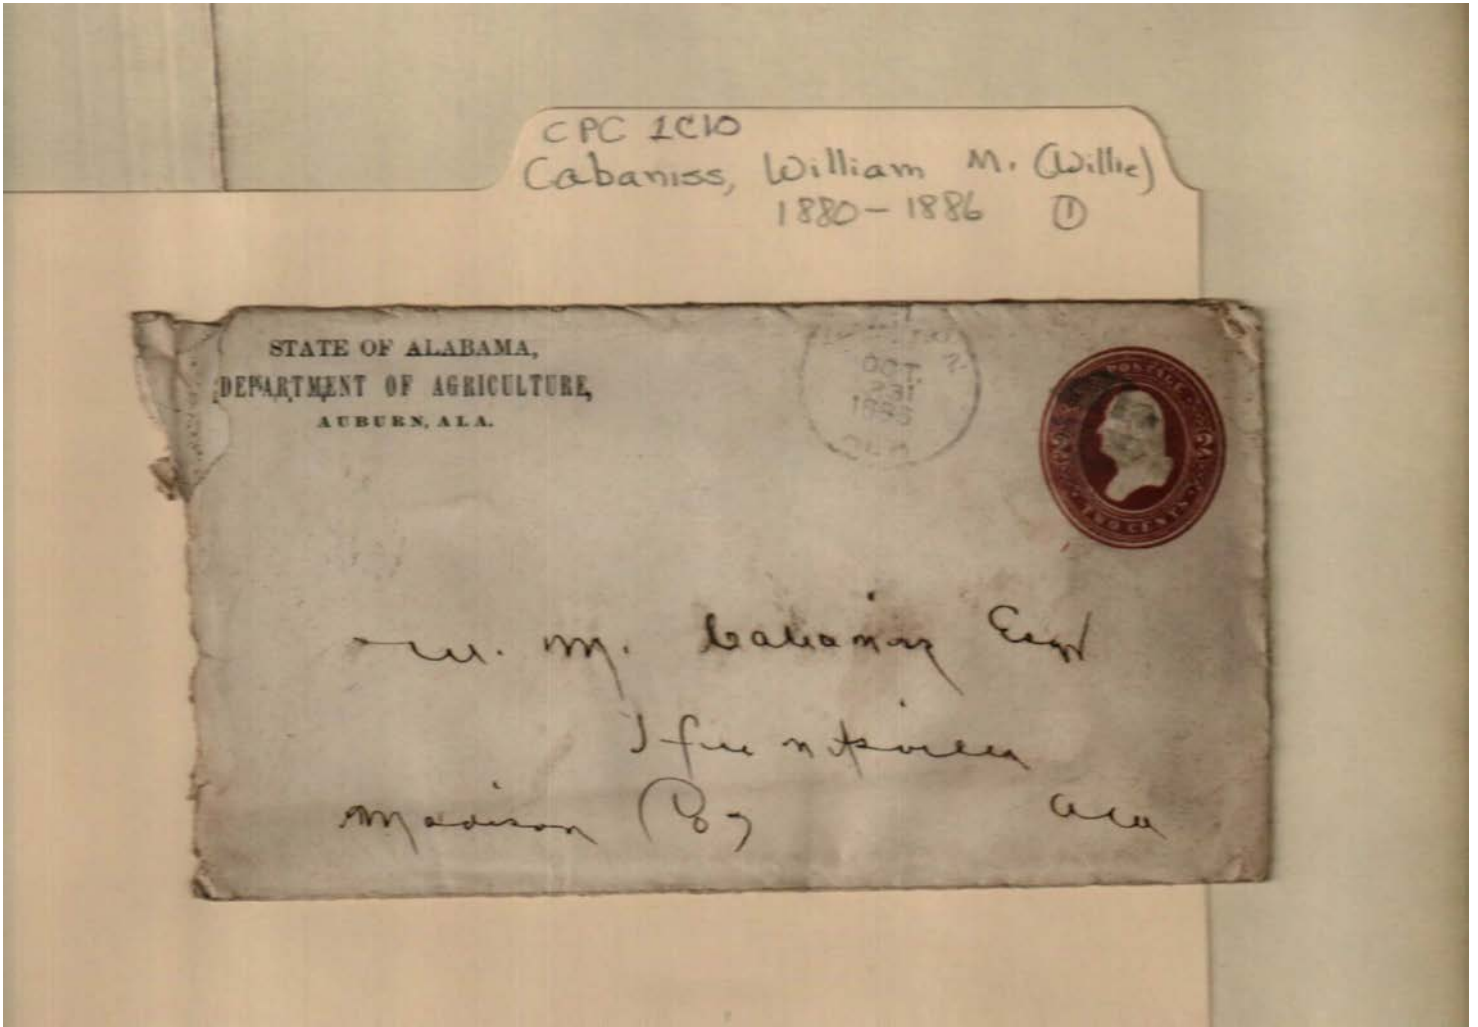 CPC 1C10
Cabaniss, William M. (Willie)
1880-1886 ①
STATE OF ALABAMA,
DEPARTMENT OF AGRICULTURE,
AUBURN, ALA.
OCT
23
ALA
POSTAGE
2 2
TWO CENTS
W. M. Cabaniss Esqr
Huntsville
Madison Coy Ala